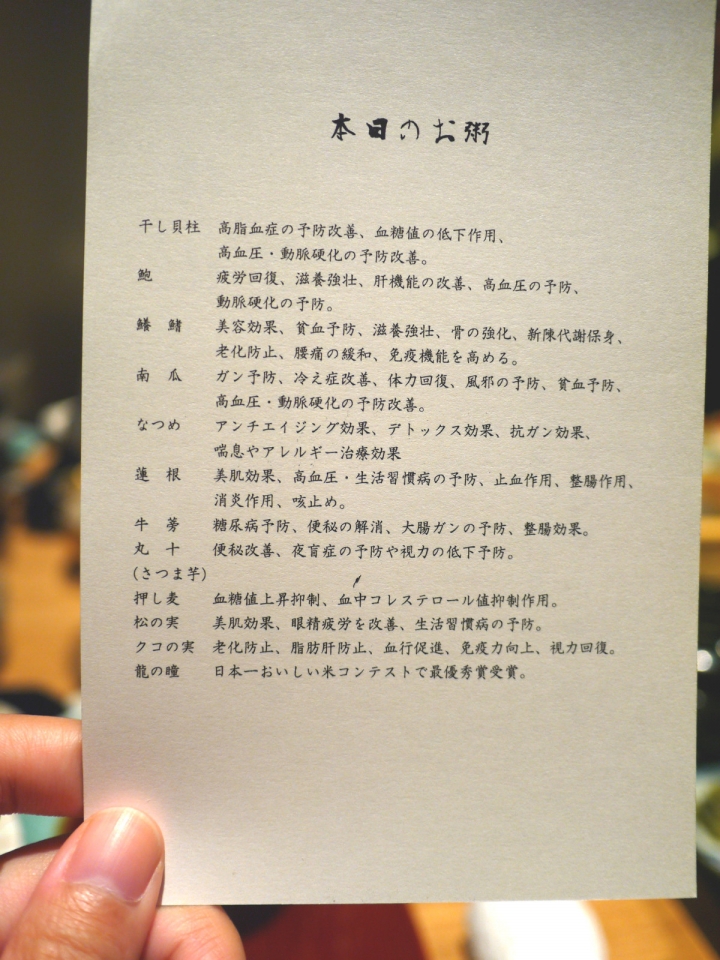 本日のお粥
干し貝柱 高脂血症の予防改善、血糖値の低下作用、
高血圧・動脈硬化の予防改善。
鮑 疲労回復、滋養強壮、肝機能の改善、高血圧の予防、
動脈硬化の予防。
鱶鰭 美容効果、貧血予防、滋養強壮、骨の強化、新陳代謝保身、
老化防止、腰痛の緩和、免疫機能を高める。
南瓜 ガン予防、冷え症改善、体力回復、風邪の予防、貧血予防、
高血圧・動脈硬化の予防改善。
なつめ アンチエイジング効果、デトックス効果、抗ガン効果、
喘息やアレルギー治療効果
蓮根 美肌効果、高血圧・生活習慣病の予防、止血作用、整腸作用、
消炎作用、咳止め。
牛蒡 糖尿病予防、便秘の解消、大腸ガンの予防、整腸効果。
丸十 便秘改善、夜盲症の予防や視力の低下予防。
(さつま芋)
押し麦 血糖値上昇抑制、血中コレステロール値抑制作用。
松の実 美肌効果、眼精疲労を改善、生活習慣病の予防。
クコの実 老化防止、脂肪肝防止、血行促進、免疫力向上、視力回復。
龍の瞳 日本一おいしい米コンテストで最優秀賞受賞。